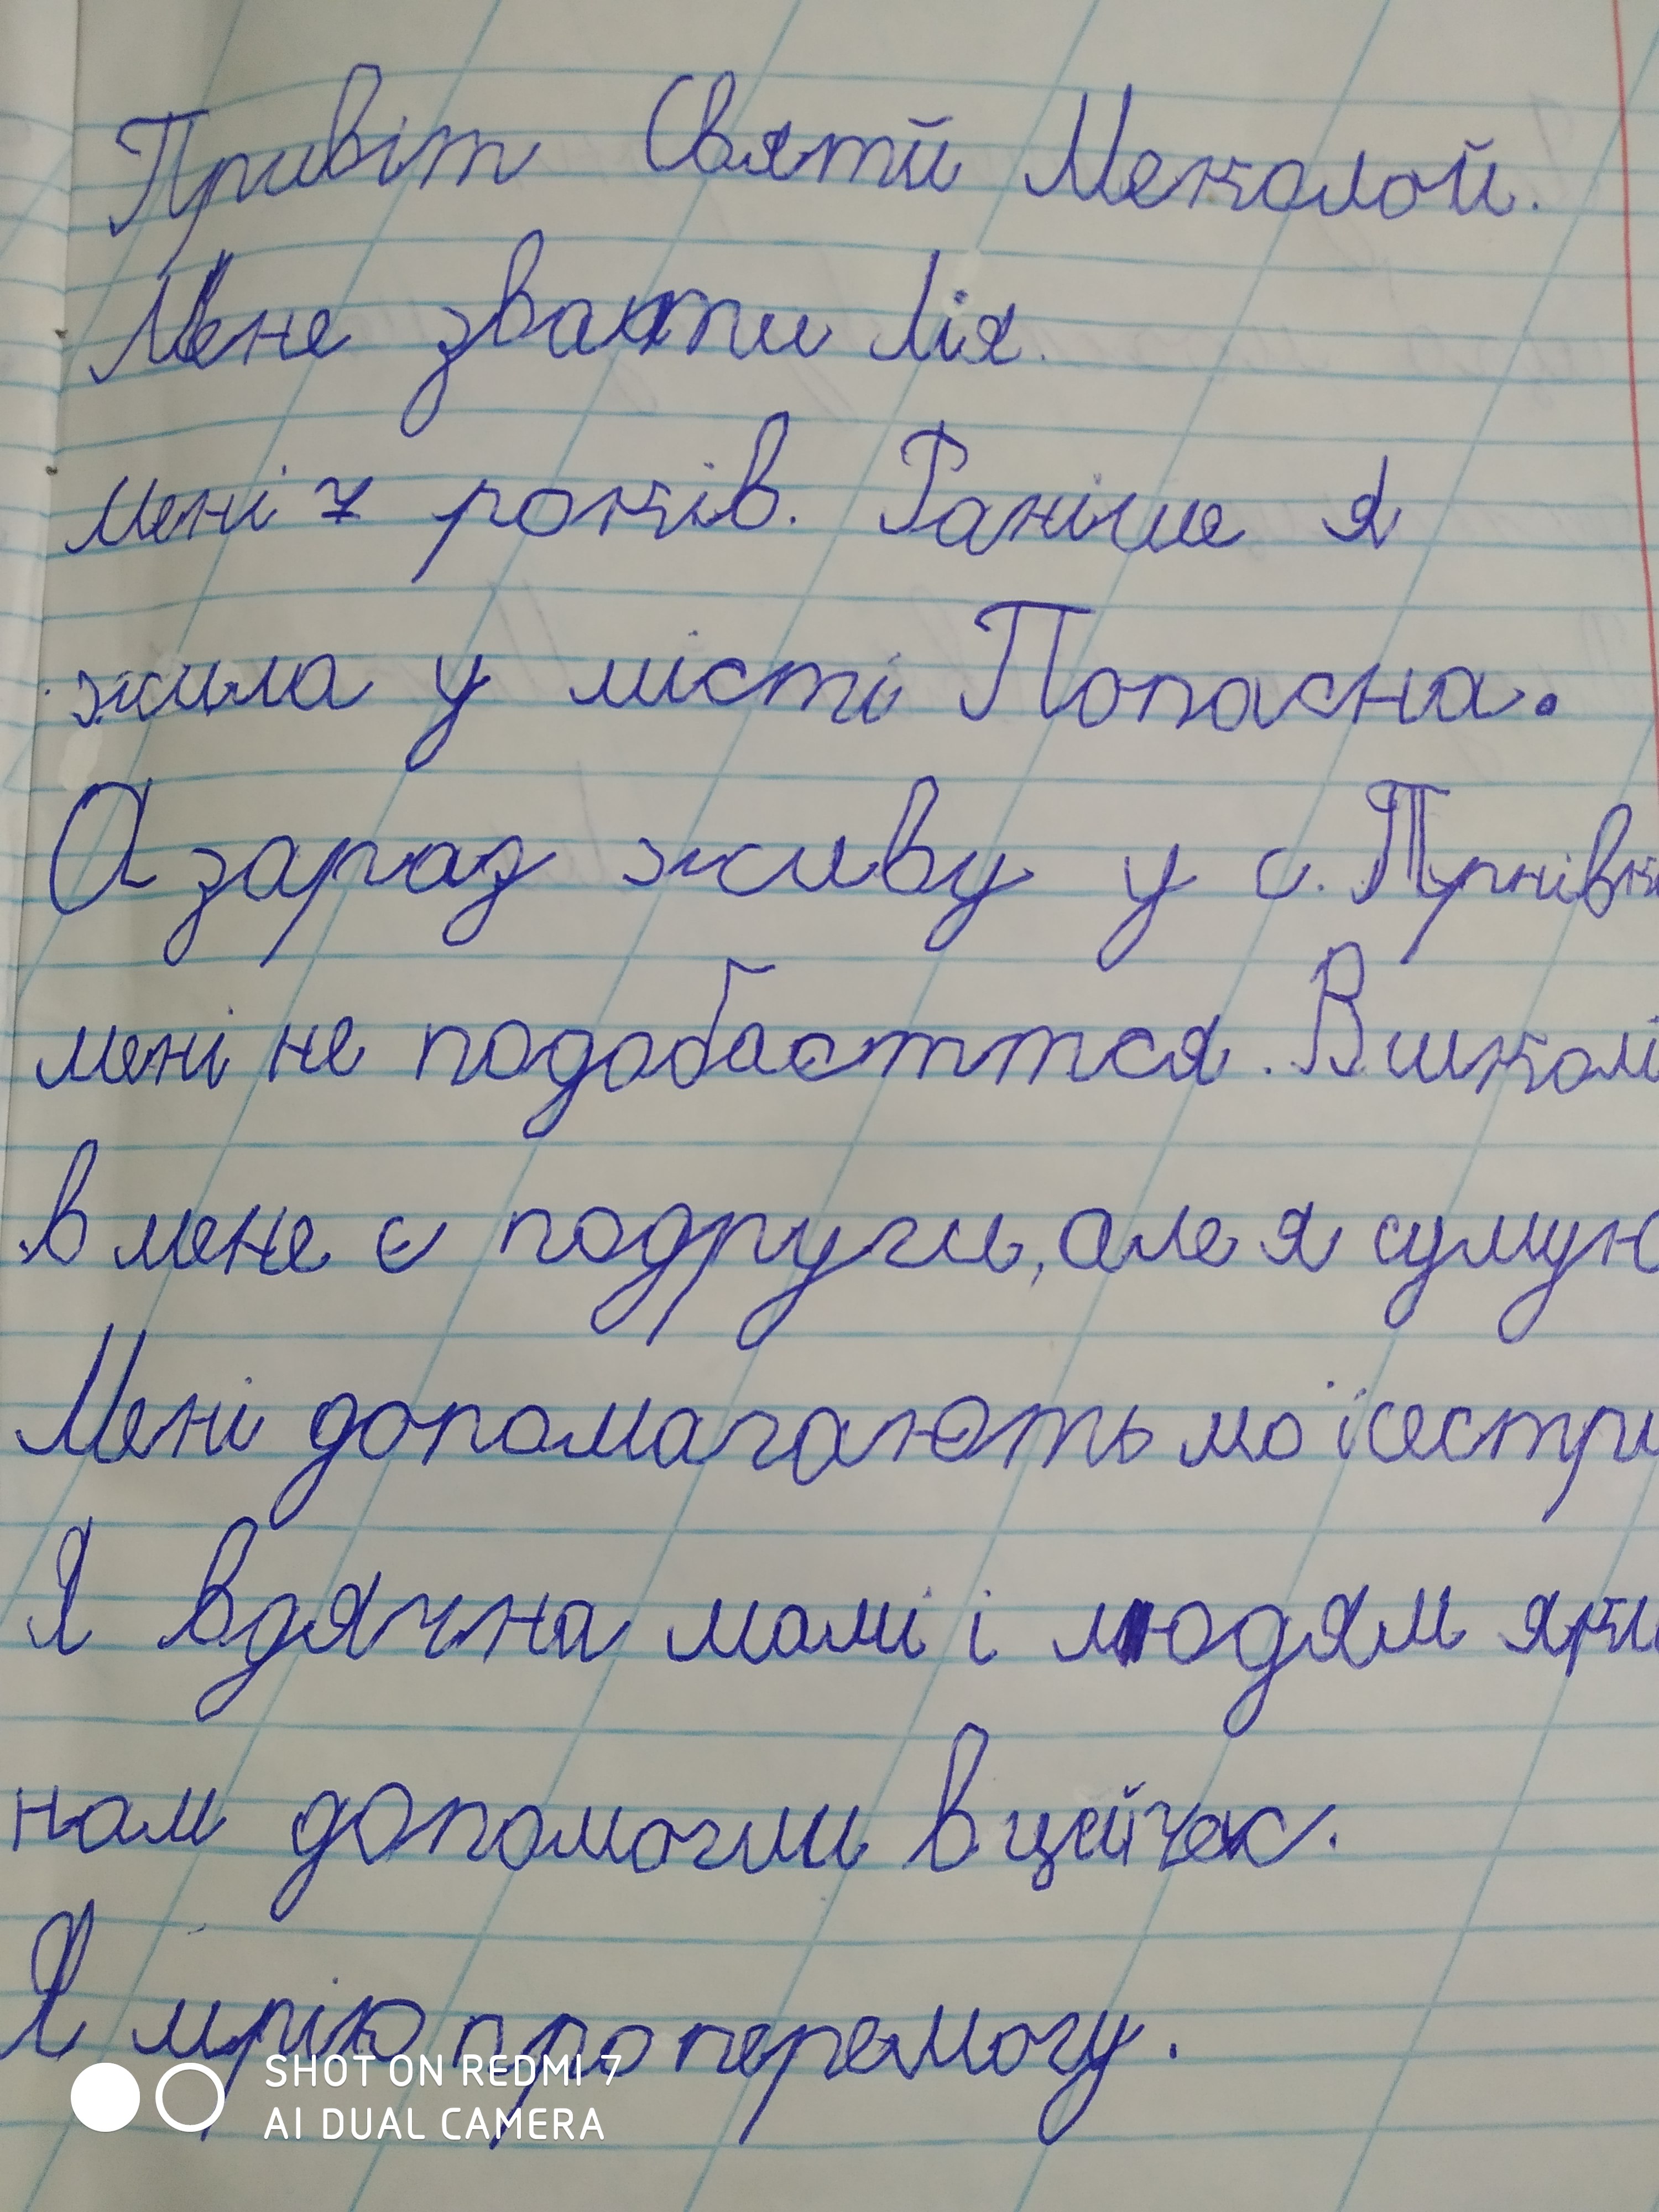 Привіт Святй Меколой.
Мене звати Лія.
мені 7 років. Раніше я
жила у місті Попасна.
А зараз живу у с.
мені не подобаєттся. В школі
в мене є подруги, але я сумую
Мені допомагають мої сестри
Я вдячна мамі і людям яки
нам допомогли в цей час.
Я мрію про перемогу.
SHOT ON REDMI 7
AI DUAL CAMERA